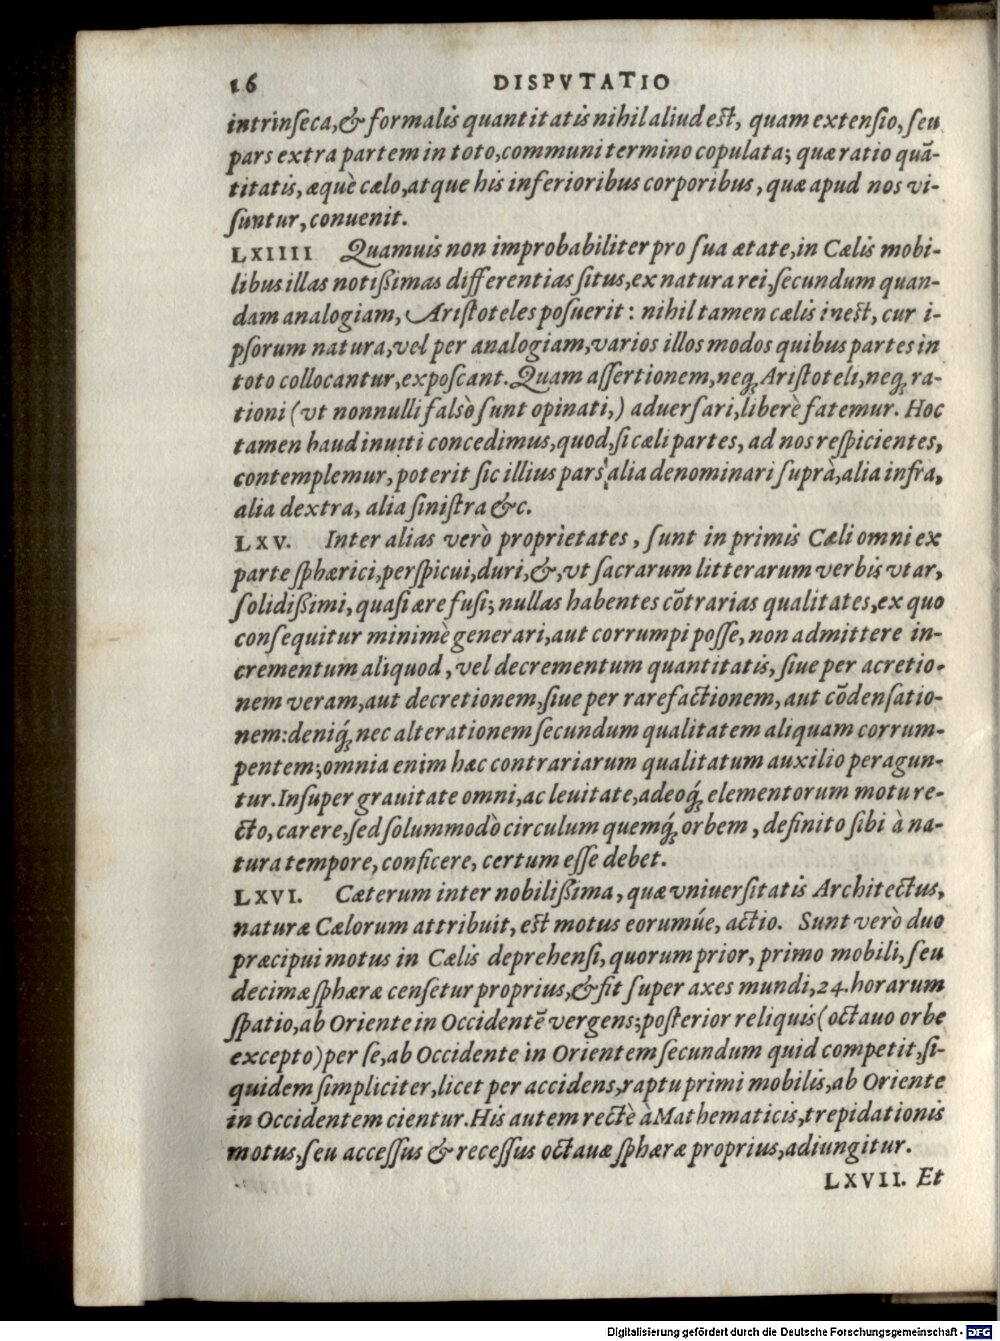 16 DISPVTATIO
intrinſeca,& formalis quantitatis nihil aliud eſt, quam extenſio, ſeu
pars extra partem in toto,communi termino copulata; quæ ratio quã-
titatis, æquè cælo,atque his inferioribus corporibus, quæ apud nos vi-
ſuntur, conuenit.
LXIIII Quamuis non improbabiliter pro ſua ætate,in Cælis mobi-
libus illas notißimas differentias ſitus,ex natura rei,ſecundum quan-
dam analogiam, Ariſtoteles poſuerit: nihil tamen cælis ineſt, cur i-
pſorum natura,vel per analogiam,varios illos modos quibus partes in
toto collocantur,expoſcant. Quam aſſertionem,neq́; Ariſtoteli,neq́; ra-
tioni (vt nonnulli falsò ſunt opinati,) aduerſari,liberè fatemur. Hoc
tamen haud inuiti concedimus,quod,ſi cæli partes, ad nos reſpicientes,
contemplemur, poterit ſic illius pars alia denominari ſuprà,alia infra,
alia dextra, alia ſiniſtra &c.
LXV. Inter alias verò proprietates, ſunt in primis Cæli omni ex
parte ſphærici,perſpicui,duri,&,vt ſacrarum litterarum verbis vtar,
ſolidißimi, quaſi ære fuſi; nullas habentes cõtrarias qualitates,ex quo
conſequitur minimè generari,aut corrumpi poſſe, non admittere in-
crementum aliquod, vel decrementum quantitatis, ſiue per acretio-
nem veram,aut decretionem,ſiue per rarefactionem, aut cõdenſatio-
nem:deniq́; nec alterationem ſecundum qualitatem aliquam corrum-
pentem;omnia enim hæc contrariarum qualitatum auxilio peragun-
tur.Inſuper grauitate omni,ac leuitate,adeoq́; elementorum motu re-
cto, carere,ſed ſolummodò circulum quemq́; orbem, definito ſibi à na-
tura tempore, conficere, certum eſſe debet.
LXVI. Cæterum inter nobilißima, quæ vniuerſitatis Architectus,
naturæ Cælorum attribuit, eſt motus eorumúe, actio. Sunt verò duo
præcipui motus in Cælis deprehenſi, quorum prior, primo mobili, ſeu
decimæ ſphæræ cenſetur proprius,& fit ſuper axes mundi,24.horarum
ſpatio,ab Oriente in Occidentẽ vergens;poſterior reliquis(octauo orbe
excepto)per ſe,ab Occidente in Orientem ſecundum quid competit,ſi-
quidem ſimpliciter,licet per accidens,raptu primi mobilis,ab Oriente
in Occidentem cientur.His autem rectè à Mathematicis,trepidationis
motus,ſeu acceſſus & receſſus octauæ ſphæræ proprius,adiungitur.
LXVII. Et
Digitalisierung gefördert durch die Deutsche Forschungsgemeinschaft - DFG